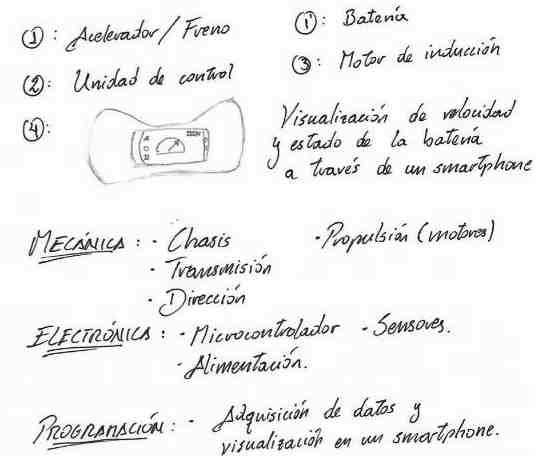 ①: Acelerador / Freno
①: Batería
②: Unidad de control
③: Motor de inducción
④:
Visualización de velocidad
y estado de la batería
a través de un smartphone
MECÁNICA: · Chasis · Propulsión (motores)
· Transmisión
· Dirección
ELECTRÓNICA: · Microcontrolador · Sensores.
· Alimentación.
PROGRAMACIÓN: · Adquisición de datos y
visualización en un smartphone.